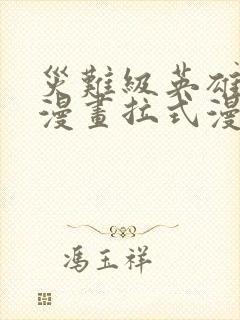 災難級英雄
漫畫拉式漫
馮玉祥